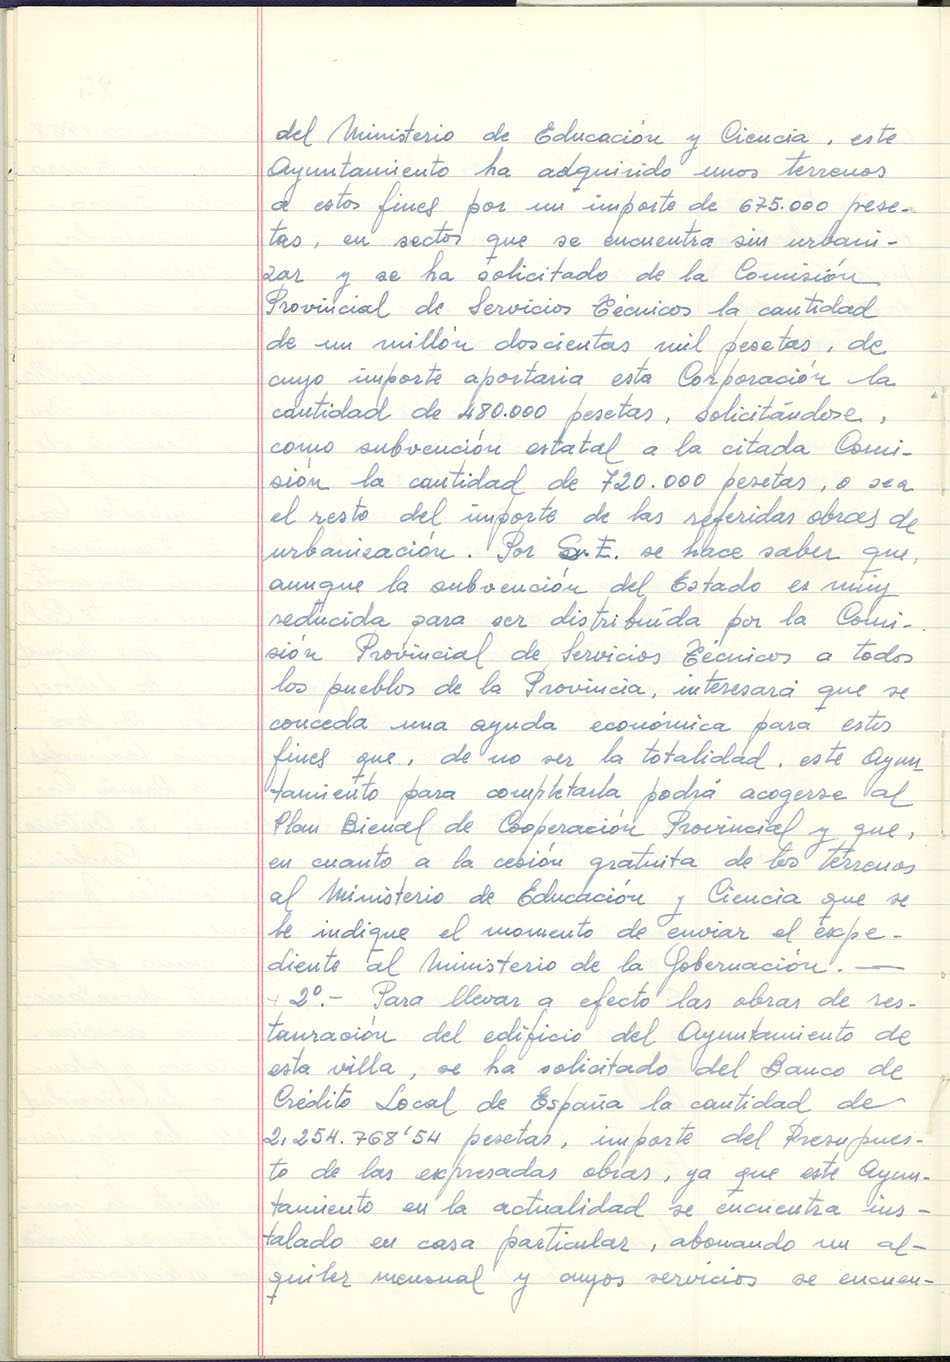 del Ministerio de Educación y Ciencia, este
Ayuntamiento ha adquirido unos terrenos
a estos fines por un importe de 675.000 pese-
tas, en sector que se encuentra sin urbani-
zar y se ha solicitado de la Comisión
Provincial de Servicios Técnicos la cantidad
de un millón doscientas mil pesetas, de
cuyo importe aportaria esta Corporación la
cantidad de 480.000 pesetas, solicitándose,
como subvención estatal a la citada Comi-
sión la cantidad de 720.000 pesetas, o sea
el resto del importe de las referidas obras de
urbanización. Por S.E. se hace saber que,
aunque la subvención del Estado es muy
reducida para ser distribuída por la Comi-
sión Provincial de Servicios Técnicos a todos
los pueblos de la Provincia, interesará que se
conceda una ayuda económica para estos
fines que, de no ser la totalidad, este Ayun
tamiento para completarla podrá acogerse al
Plan Bienal de Cooperación Provincial y que,
en cuanto a la cesión gratuita de los terrenos
al Ministerio de Educación y Ciencia que se
le indique el momento de enviar el expe-
diente al Ministerio de la Gobernación. —
2º.- Para llevar a efecto las obras de res-
tauración del edificio del Ayuntamiento de
esta villa, se ha solicitado del Banco de
Crédito Local de España la cantidad de
2,254.768'54 pesetas, importe del Presupues-
to de las expresadas obras, ya que este Ayun-
tamiento en la actualidad se encuentra ins-
talado en casa particular, abonando un al-
quiler mensual y cuyos servicios se encuen-